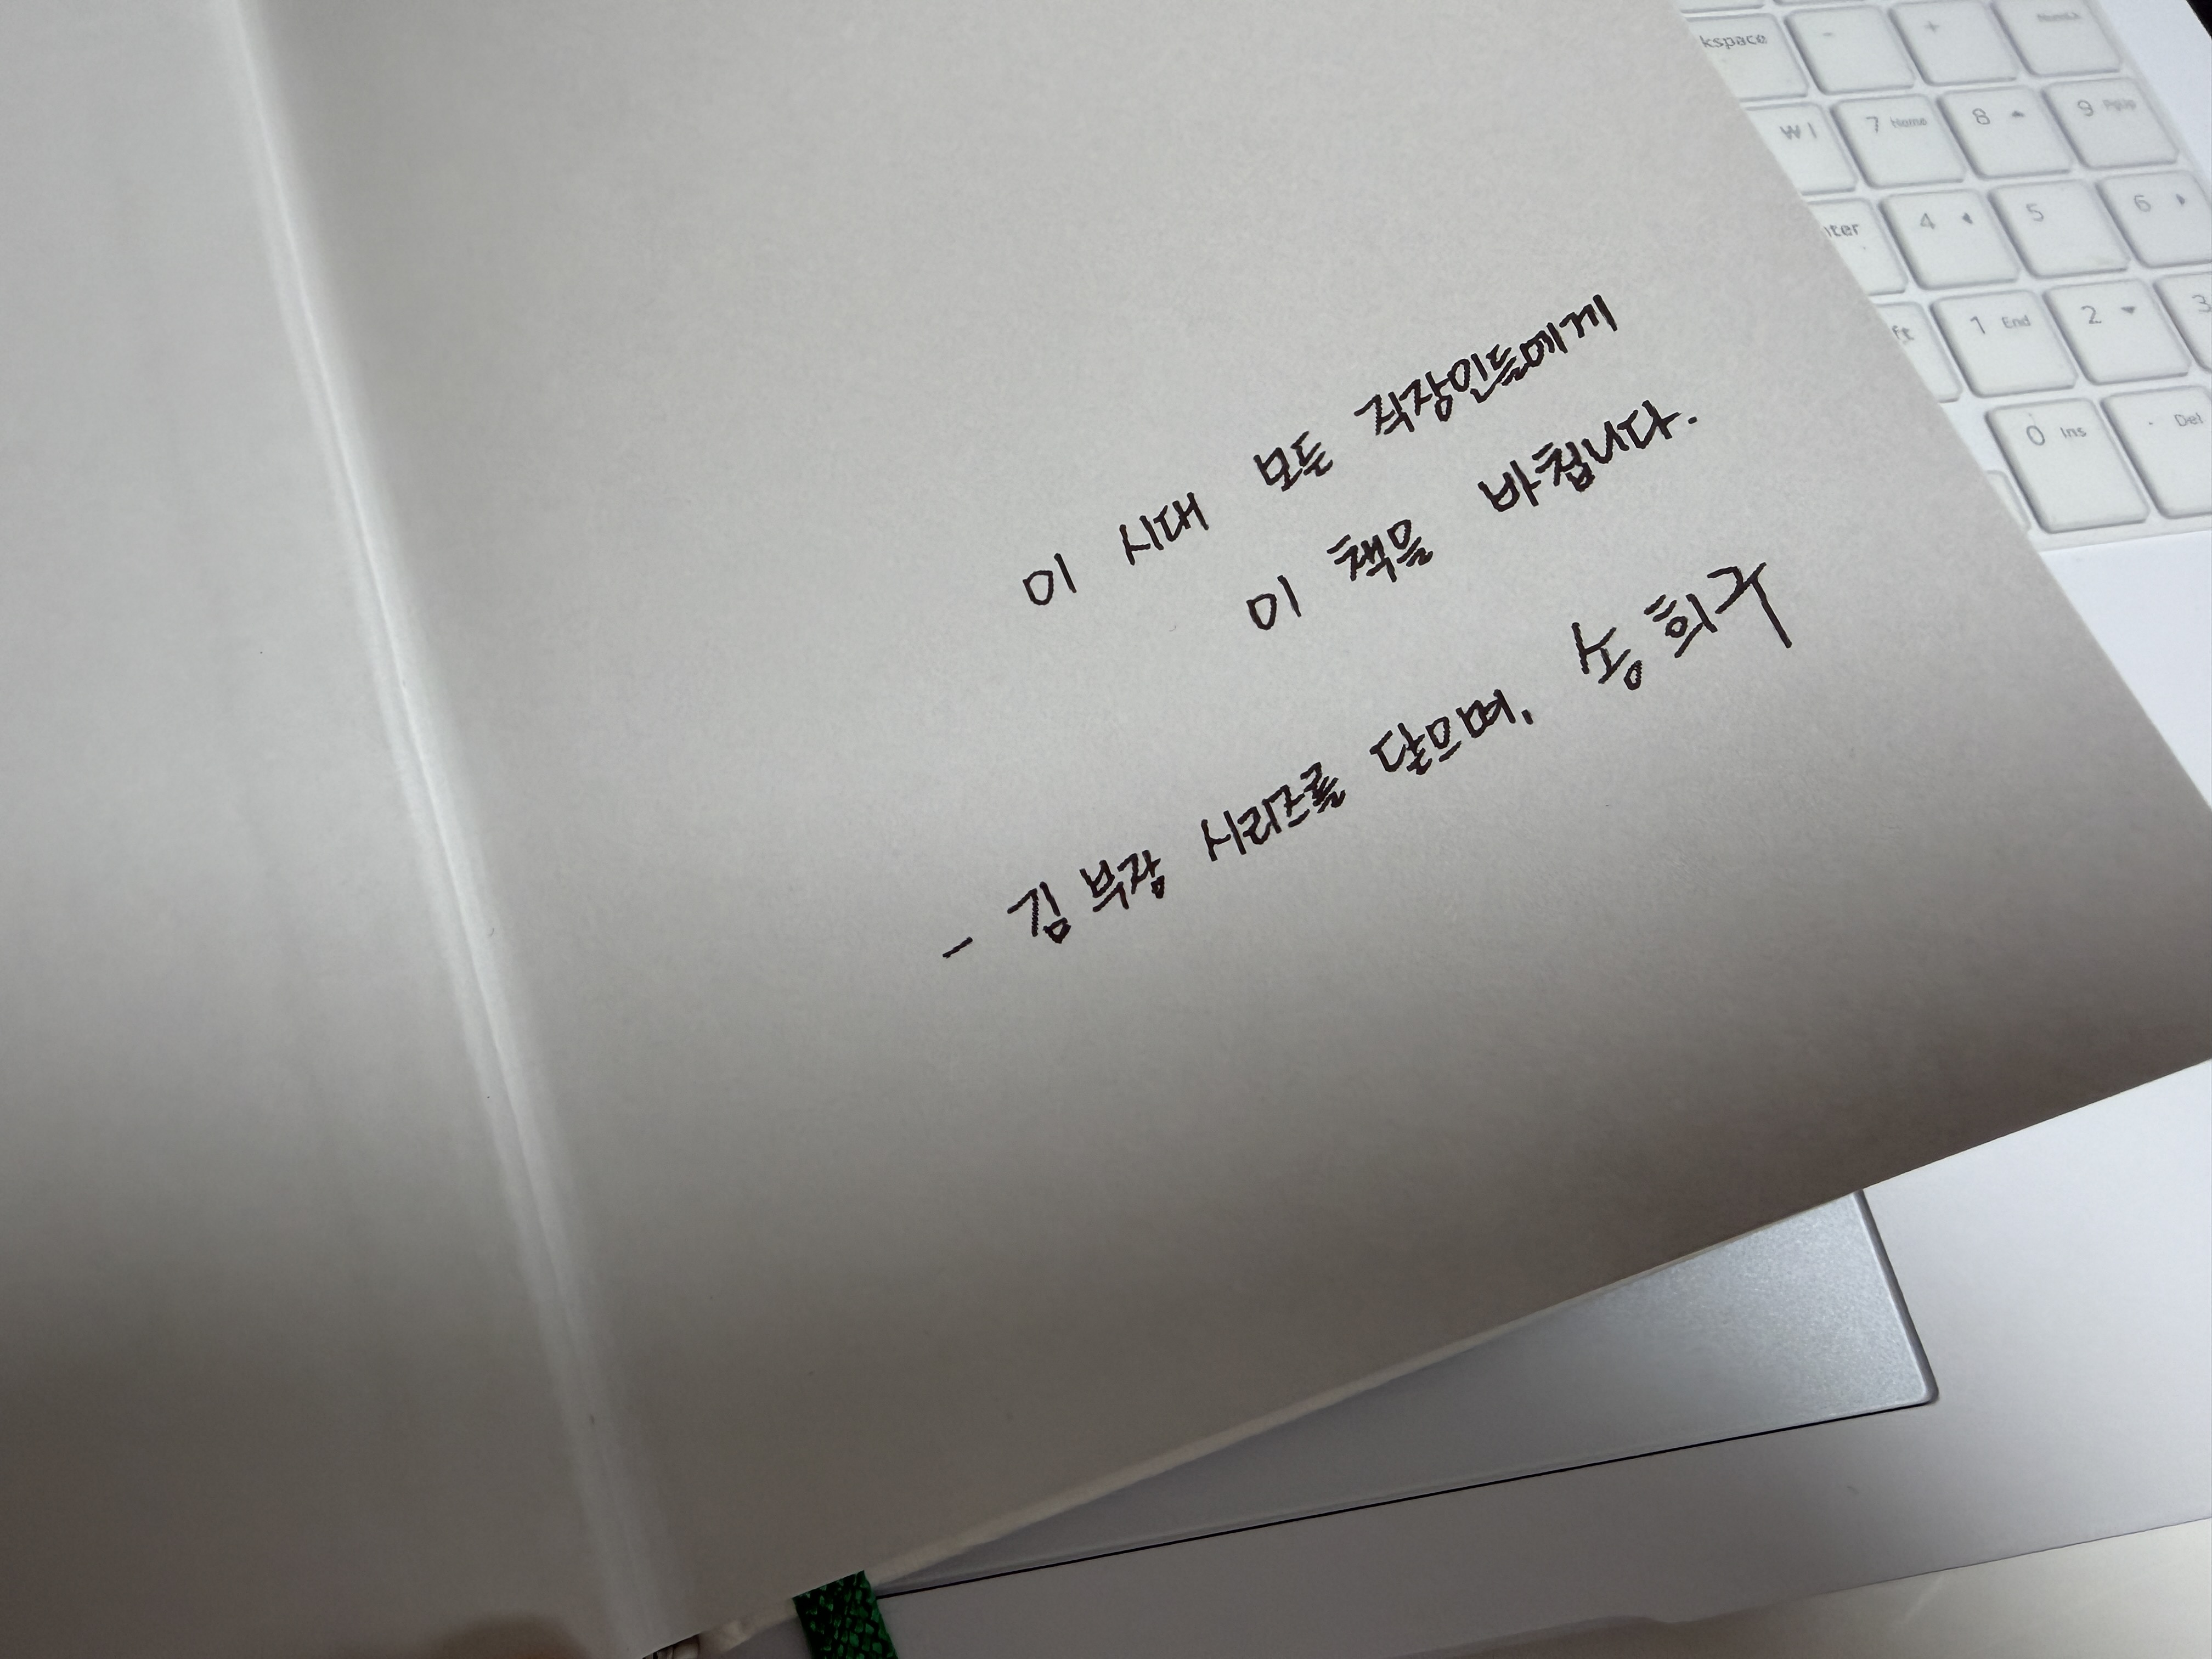 이 시대 모든 직장인들에게
이 책을 바칩니다.
- 김 부장 시리즈를 닫으며, 송희구
kspace - + NumLk
7 Home 8 9 PgUp
4 5 6
1 End 2 3
0 Ins . Del